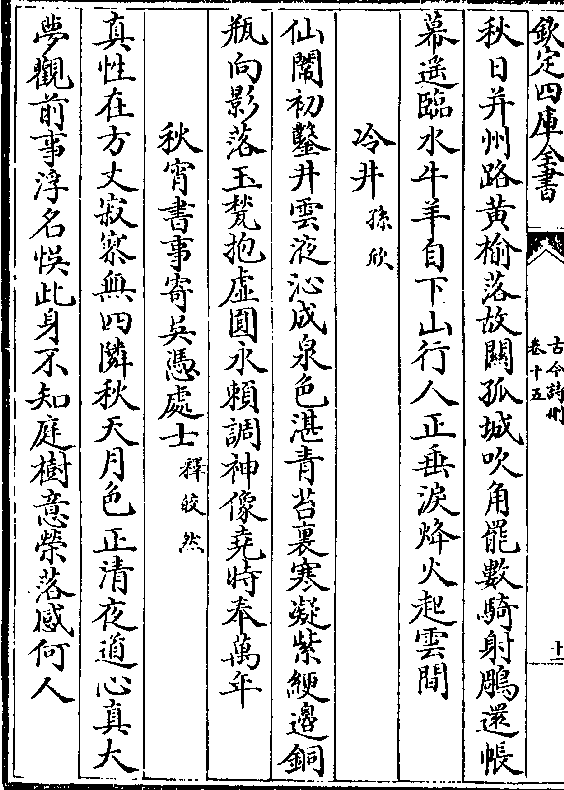 欽定四庫全書
古今詩刪
卷十五
十一
秋日并州路黄榆落故闗孤城吹角罷數騎射鵰還帳
幕遥臨水牛羊自下山行人正垂淚烽火起雲間
冷井 孫欣
仙闈初鑿井雲液沁成泉色湛青苔裏寒凝紫綆邊銅
瓶向影落玉甃抱虛圓永頼調神像堯時奉萬年
秋宵書事寄吳憑處士 釋皎然
真性在方丈寂寥無四隣秋天月色正清夜道心真大
夢觀前事浮名悞此身不知庭樹意榮落感何人